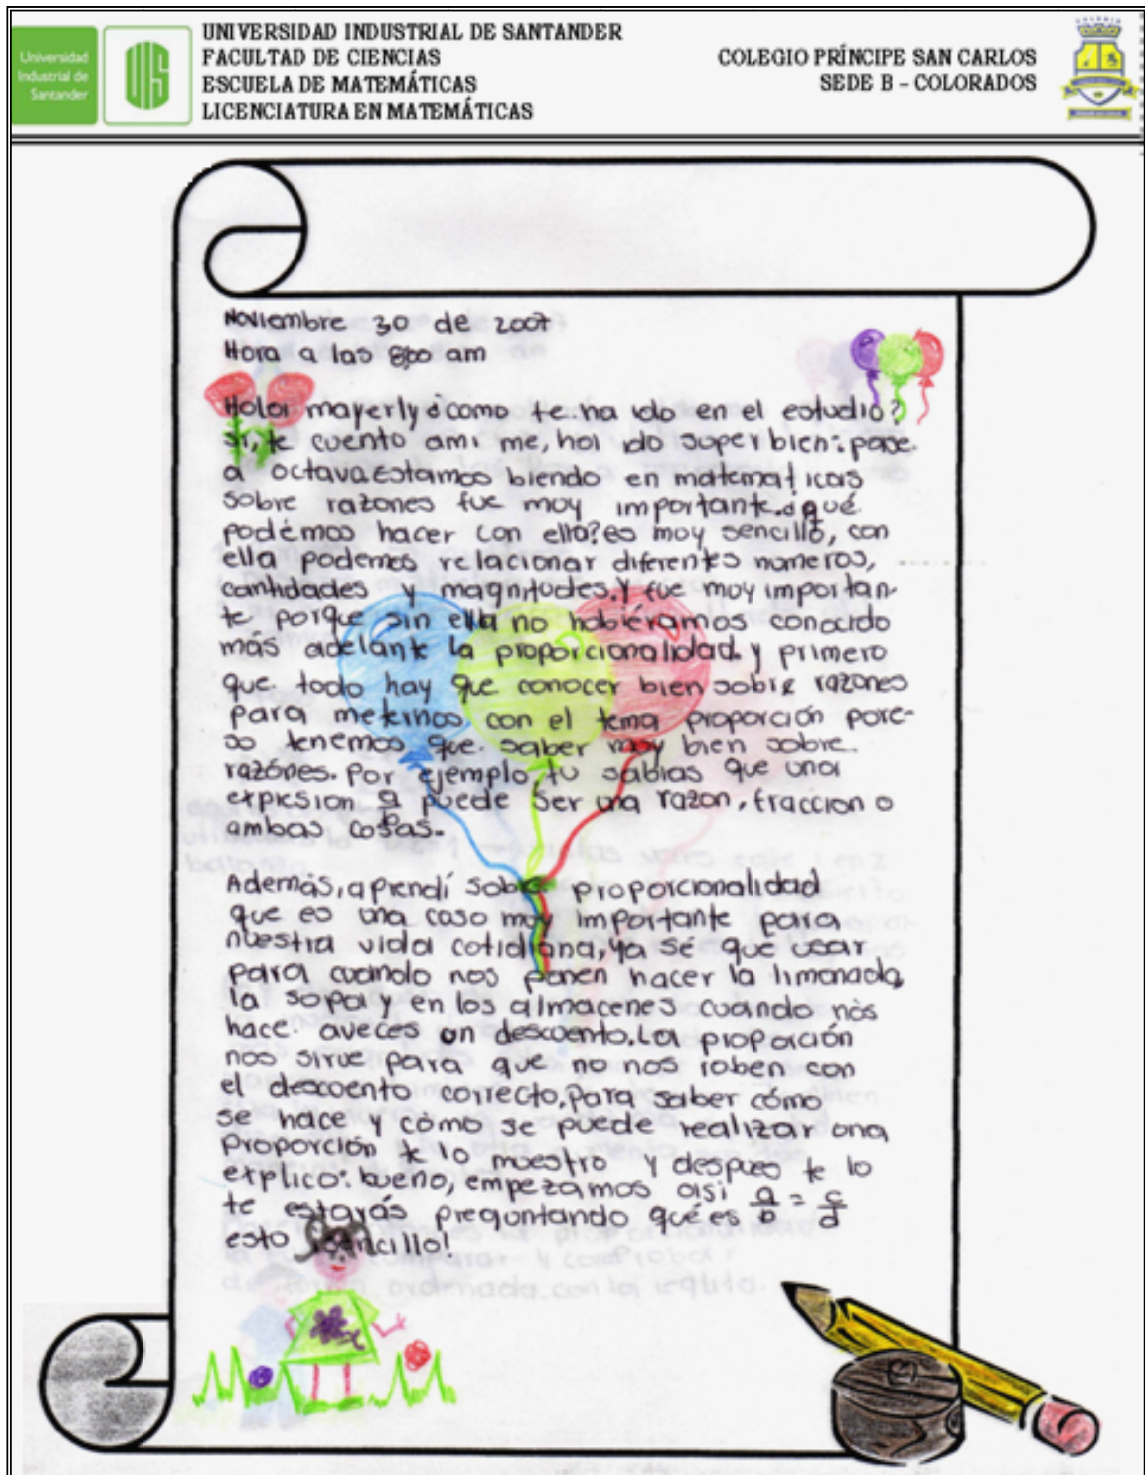 Universidad
Industrial de
Santander
UIS
UNIVERSIDAD INDUSTRIAL DE SANTANDER
FACULTAD DE CIENCIAS
ESCUELA DE MATEMÁTICAS
LICENCIATURA EN MATEMÁTICAS
COLEGIO PRÍNCIPE SAN CARLOS
SEDE B - COLORADOS
Noviembre 30 de 2007
Hora a las 8:00 am
Hola mayerly ¿como te ha ido en el estudio?
si, te cuento ami me, ha ido super bien: pase
a octava Estamos biendo en matematicas
sobre razones fue muy importante. ¿qué
podémos hacer con ella? es muy sencillo, con
ella podemos relacionar diferentes numeros,
cantidades y magnitudes. Y fue muy importan-
te porque sin ella no habiéramos conocido
más adelante la proporcionalidad. y primero
que todo hay que conocer bien sobre razones
para meternos con el tema proporción pore-
so tenemos que saber muy bien sobre
razónes. Por ejemplo tu sabias que una
expresion a/b puede ser una razon, fraccion o
ambas cosas.
Además, aprendí sobre proporcionalidad
que es una caso muy importante para
nuestra vida cotidiana, ya sé que usar
para cuando nos ponen hacer la limonada,
la sopa y en los almacenes cuando nos
hace aveces un descuento. La proporción
nos sirve para que no nos roben con
el descuento correcto, Para saber cómo
se hace y cómo se puede realizar una
proporción te lo muestro y despues te lo
explico: bueno, empezamos asi a/b = c/d
te estarás preguntando qué es
esto sencillo!